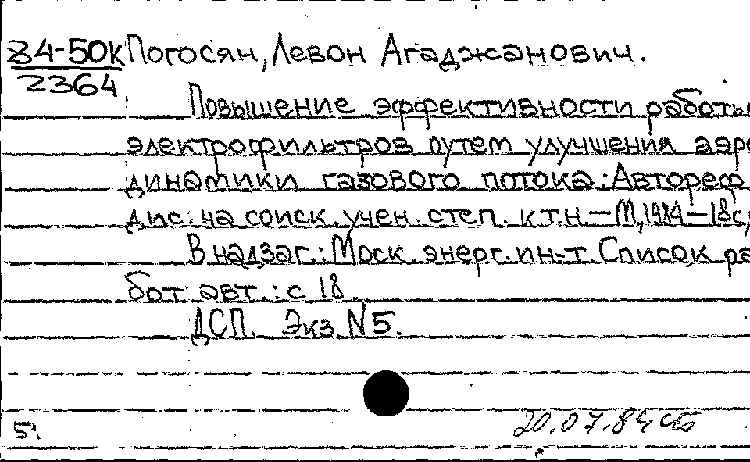 84-50к Погосян, Левон Агаджанович.
2364
Повышение эффективности работы
электрофильтров путем улучшения аэро
динамики газового потока: Автореф
дис. на соиск. учен. степ. к.т.н. – М, 1984 – 18с,
В надзаг.: Моск. энерг. ин-т. Список ра
бот авт.: с 18.
ДСП. Экз. N5.
5.
20.07.84